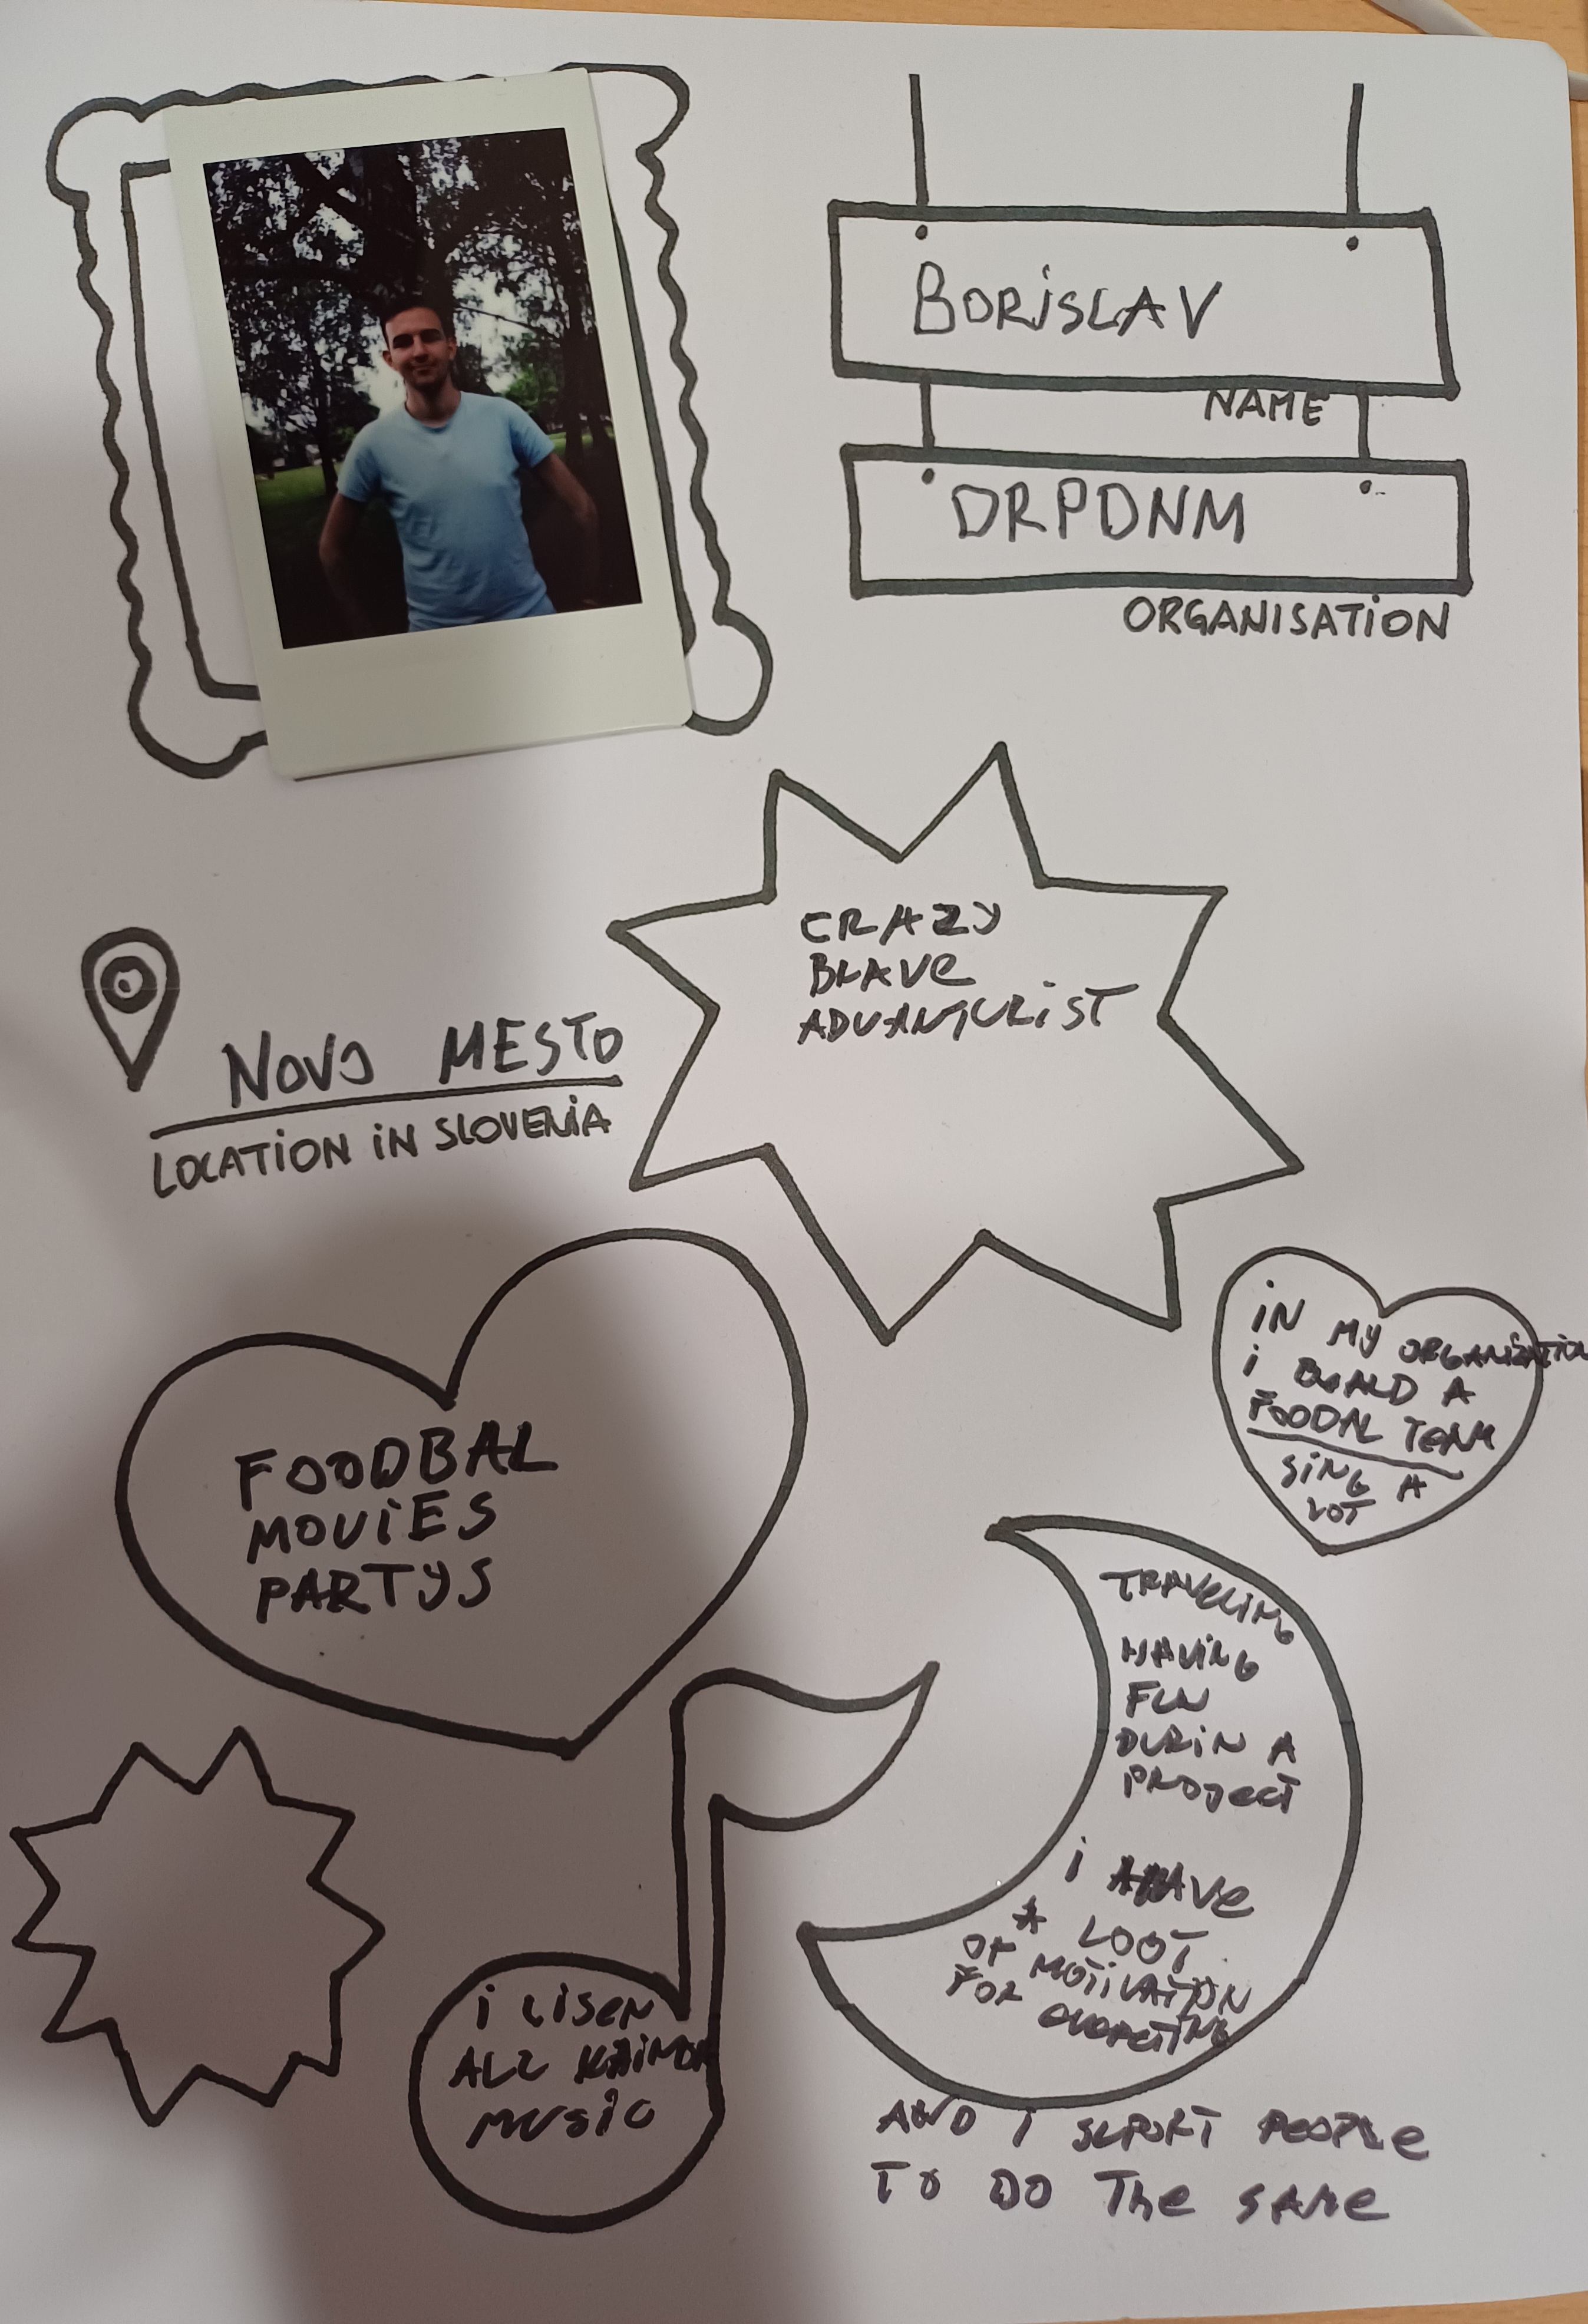 BORISLAV
NAME
DRPDNM
ORGANISATION
CRAZY
BRAVE
ADVANTURIST
NOVO MESTO
LOCATION IN SLOVENIA
IN MY ORGANIZATION
I BUALD A
FOODAL TEAM
SING A
LOT
FOODBAL
MOVIES
PARTYS
TRAVELING
HAVING
FUN
DURIN A
PROJECT
I HAVE
A LOOT
OF MOTIVATION
FOR
I LISEN
ALL
MUSIC
AND I SUPORT PEOPLE
TO DO THE SAME